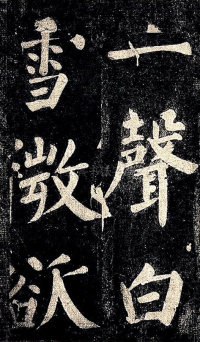 一聲白
雪微欲